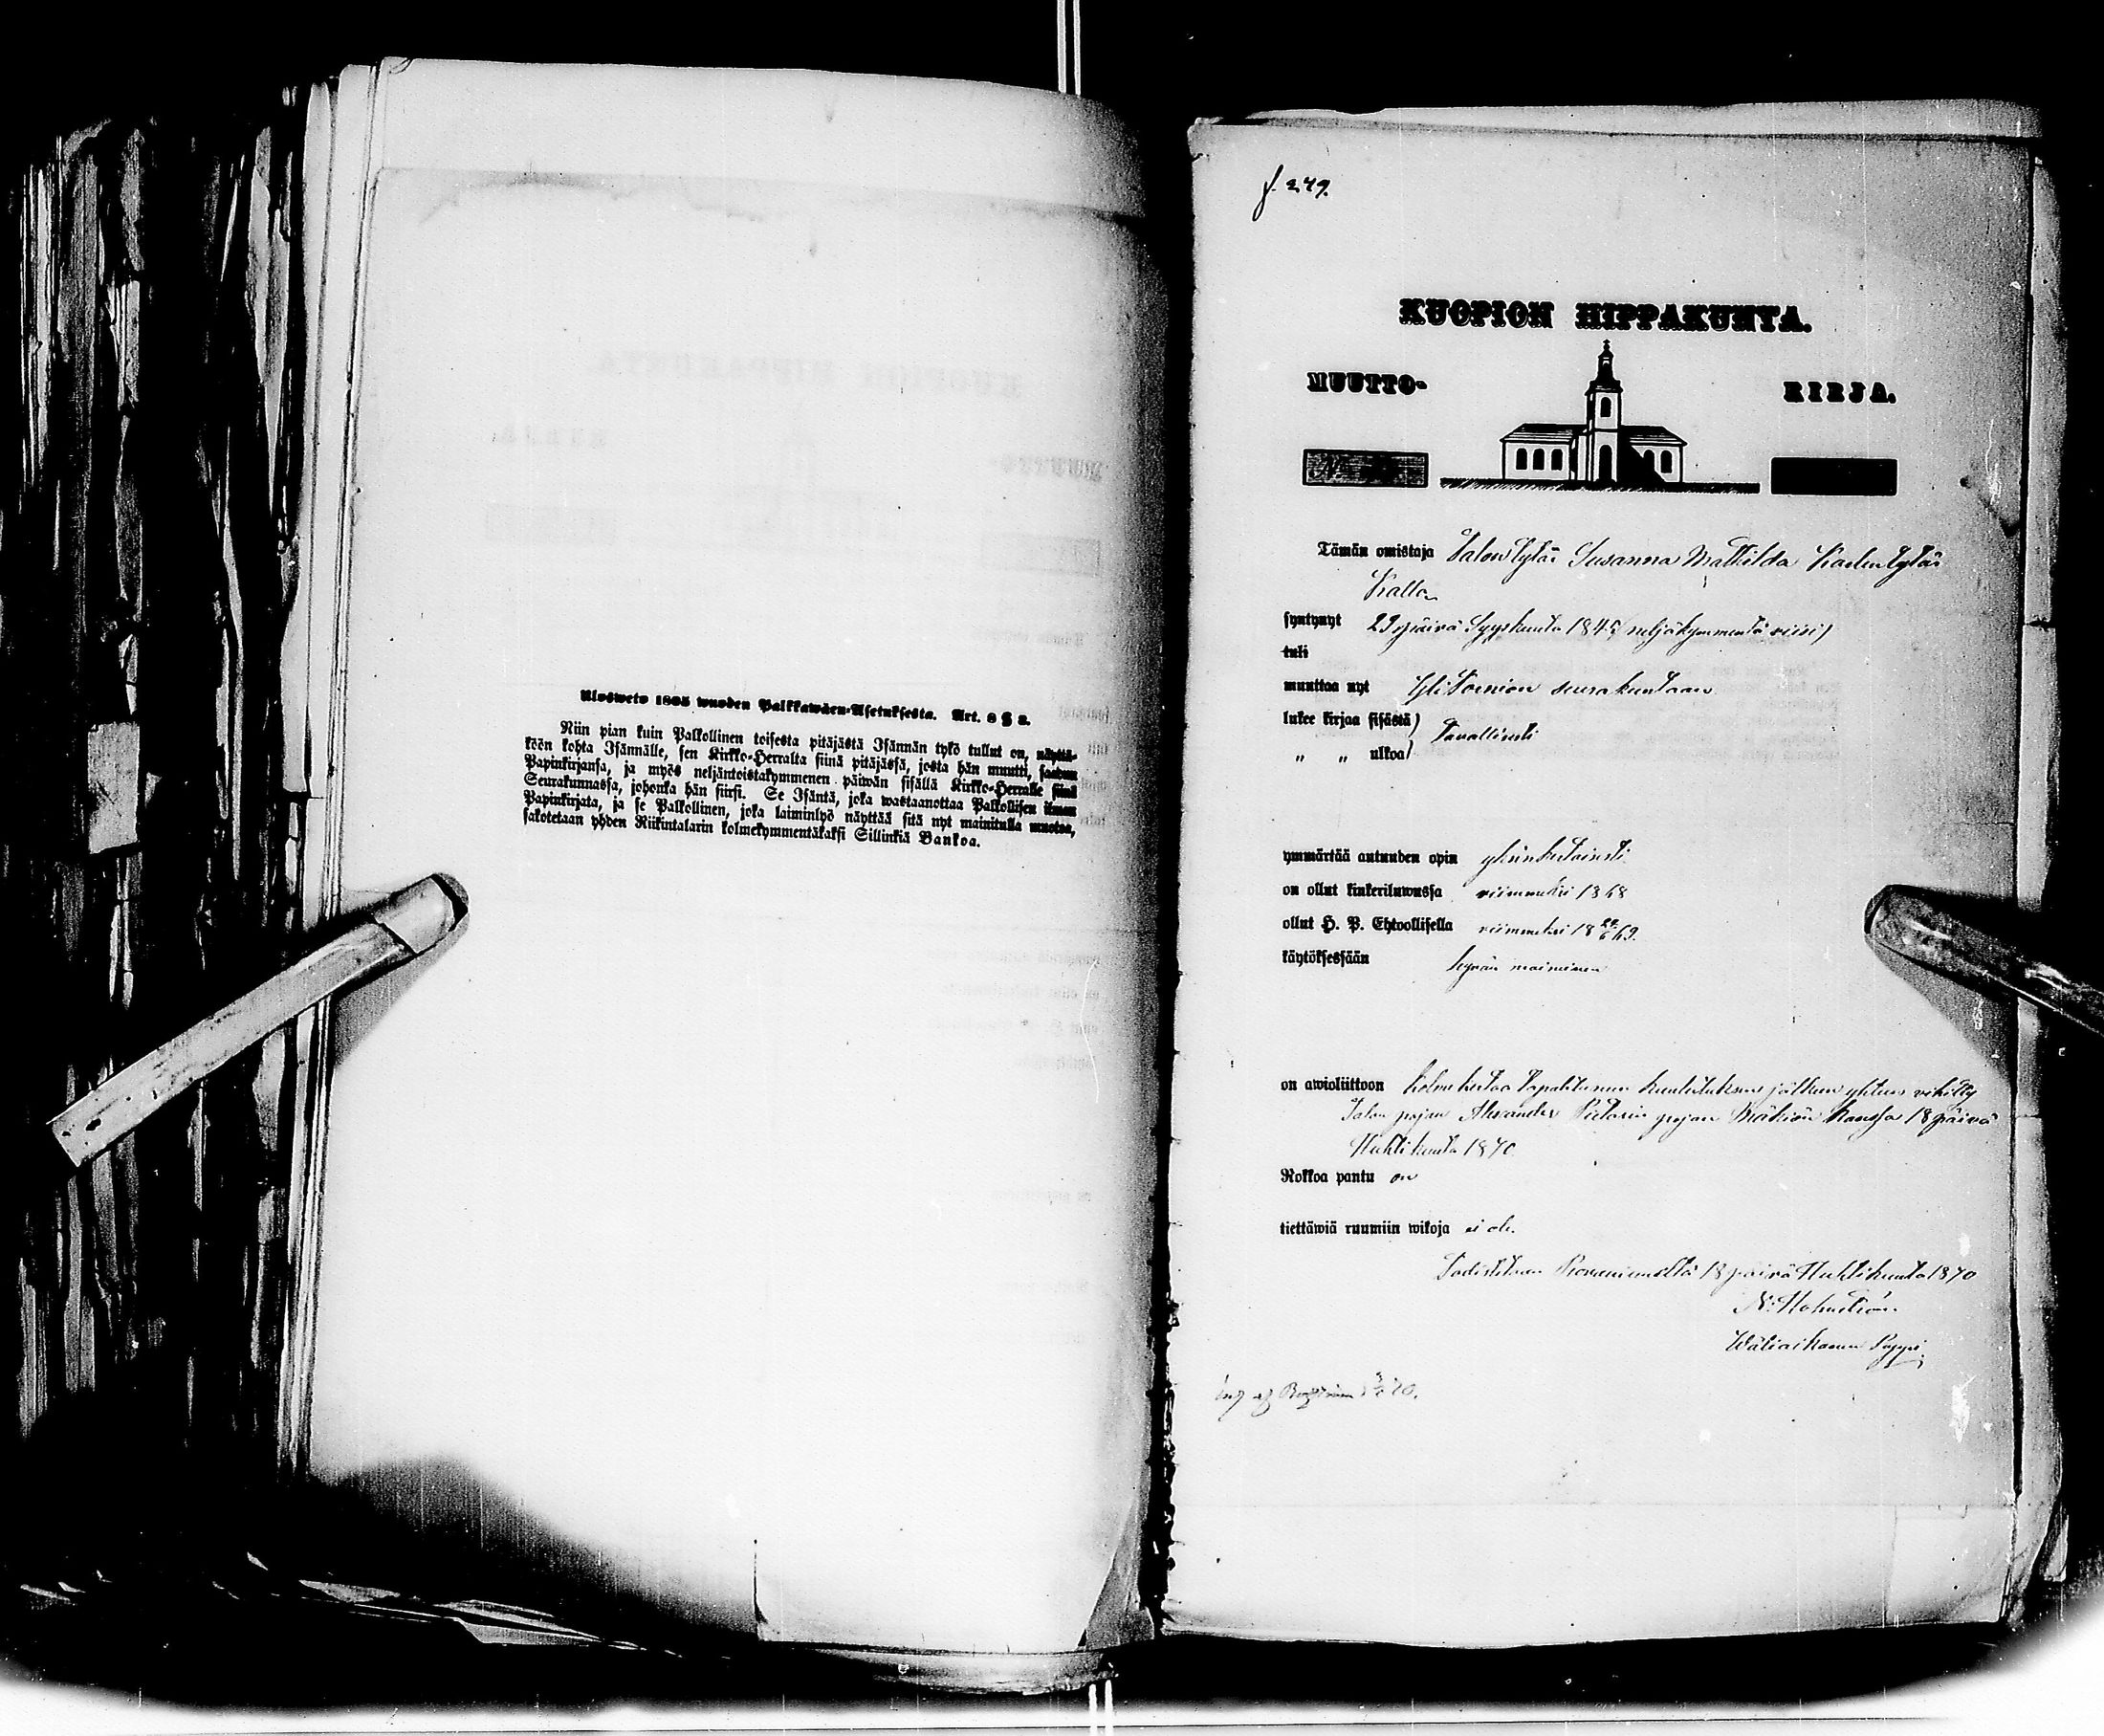 Ulosweto 1805 wuoden Palkkawäen-Asetuksesta. Art. 8 § 3.
Niin pian kuin Palkollinen toisesta pitäjästä Isännän tykö tullut on, näyttä-
köön kohta Isännälle, sen Kirkko-Herralta siinä pitäjässä, josta hän muutti, saadun
Papinkirjansa, ja myös neljäntoistakymmenen päiwän sisällä Kirkko-Herralle siinä
Seurakunnassa, johonka hän siirsi. Se Isäntä, joka wastaanottaa Palkollisen ilman
Papinkirjata, ja se Palkollinen, joka laiminlyö näyttää sitä nyt mainitulla muotoa,
sakotetaan yhden Riikintalarin kolmekymmentäkaksi Sillinkiä Bankoa.
f. 249.
KUOPION HIPPAKUNTA.
MUUTTO- KIRJA.
Tämän omistaja Talon tytär Susanna Mathilda Kaarlentytär
Kallo
syntynyt 29 päivä Syyskuuta 1845 (neljäkymmentä viisi)
tuli
muuttaa nyt Yli Tornion seurakuntaan
lukee kirjaa sisästä) Tavallisesti
„ „ ulkoa)
ymmärtää autuuden opin yksinkertaisesti
on ollut kinkeriluwussa viimmeksi 1868
ollut H. P. Ehtoollisella viimmeksi 18 /6 69.
käytöksessään hyvän maininen
on awioliittoon kolme kertaa tapahtuneen kuulutuksen jälkeen yhteen vihitty
Talon pojan Alexander Pietarin pojan Mäkiön kanssa 18 päivä
Huhtikuuta 1870.
Rokkoa pantu on
tiettäwiä ruumiin wikoja ei ole.
Todistetaan Rovaniemeltä 18 päivä Huhtikuuta 1870
N:
Väliaikanen Pappi